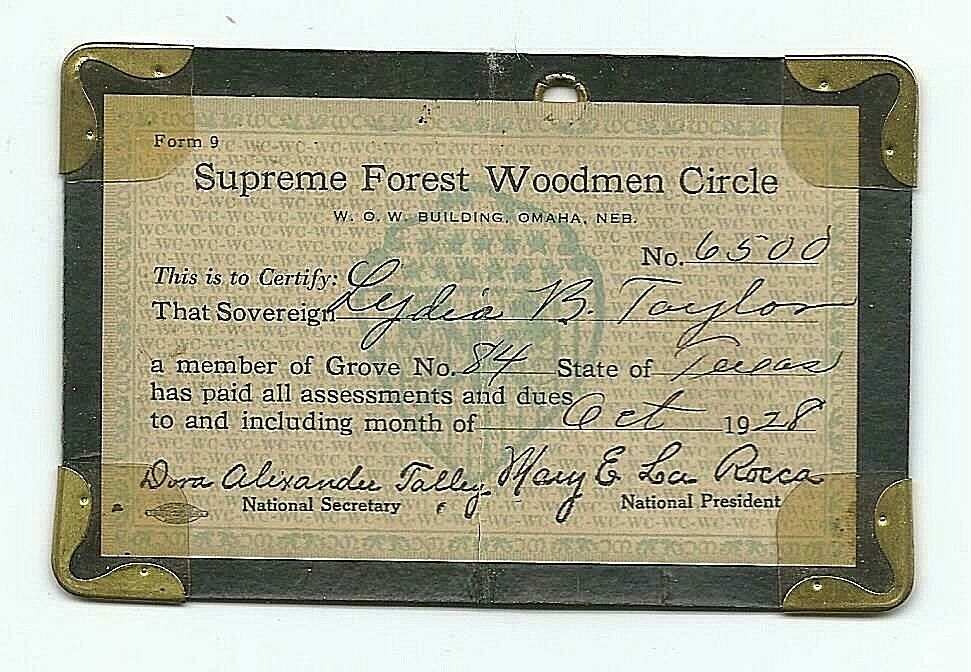 Form 9
Supreme Forest Woodmen Circle
W. O. W. BUILDING, OMAHA, NEB.
No. 6500
This is to Certify:
That Sovereign Lydia B. Taylor
a member of Grove No. 84 State of Texas
has paid all assessments and dues
to and including month of Oct 1928
Dora Alexander Talley Mary E La Rocca
National Secretary National President